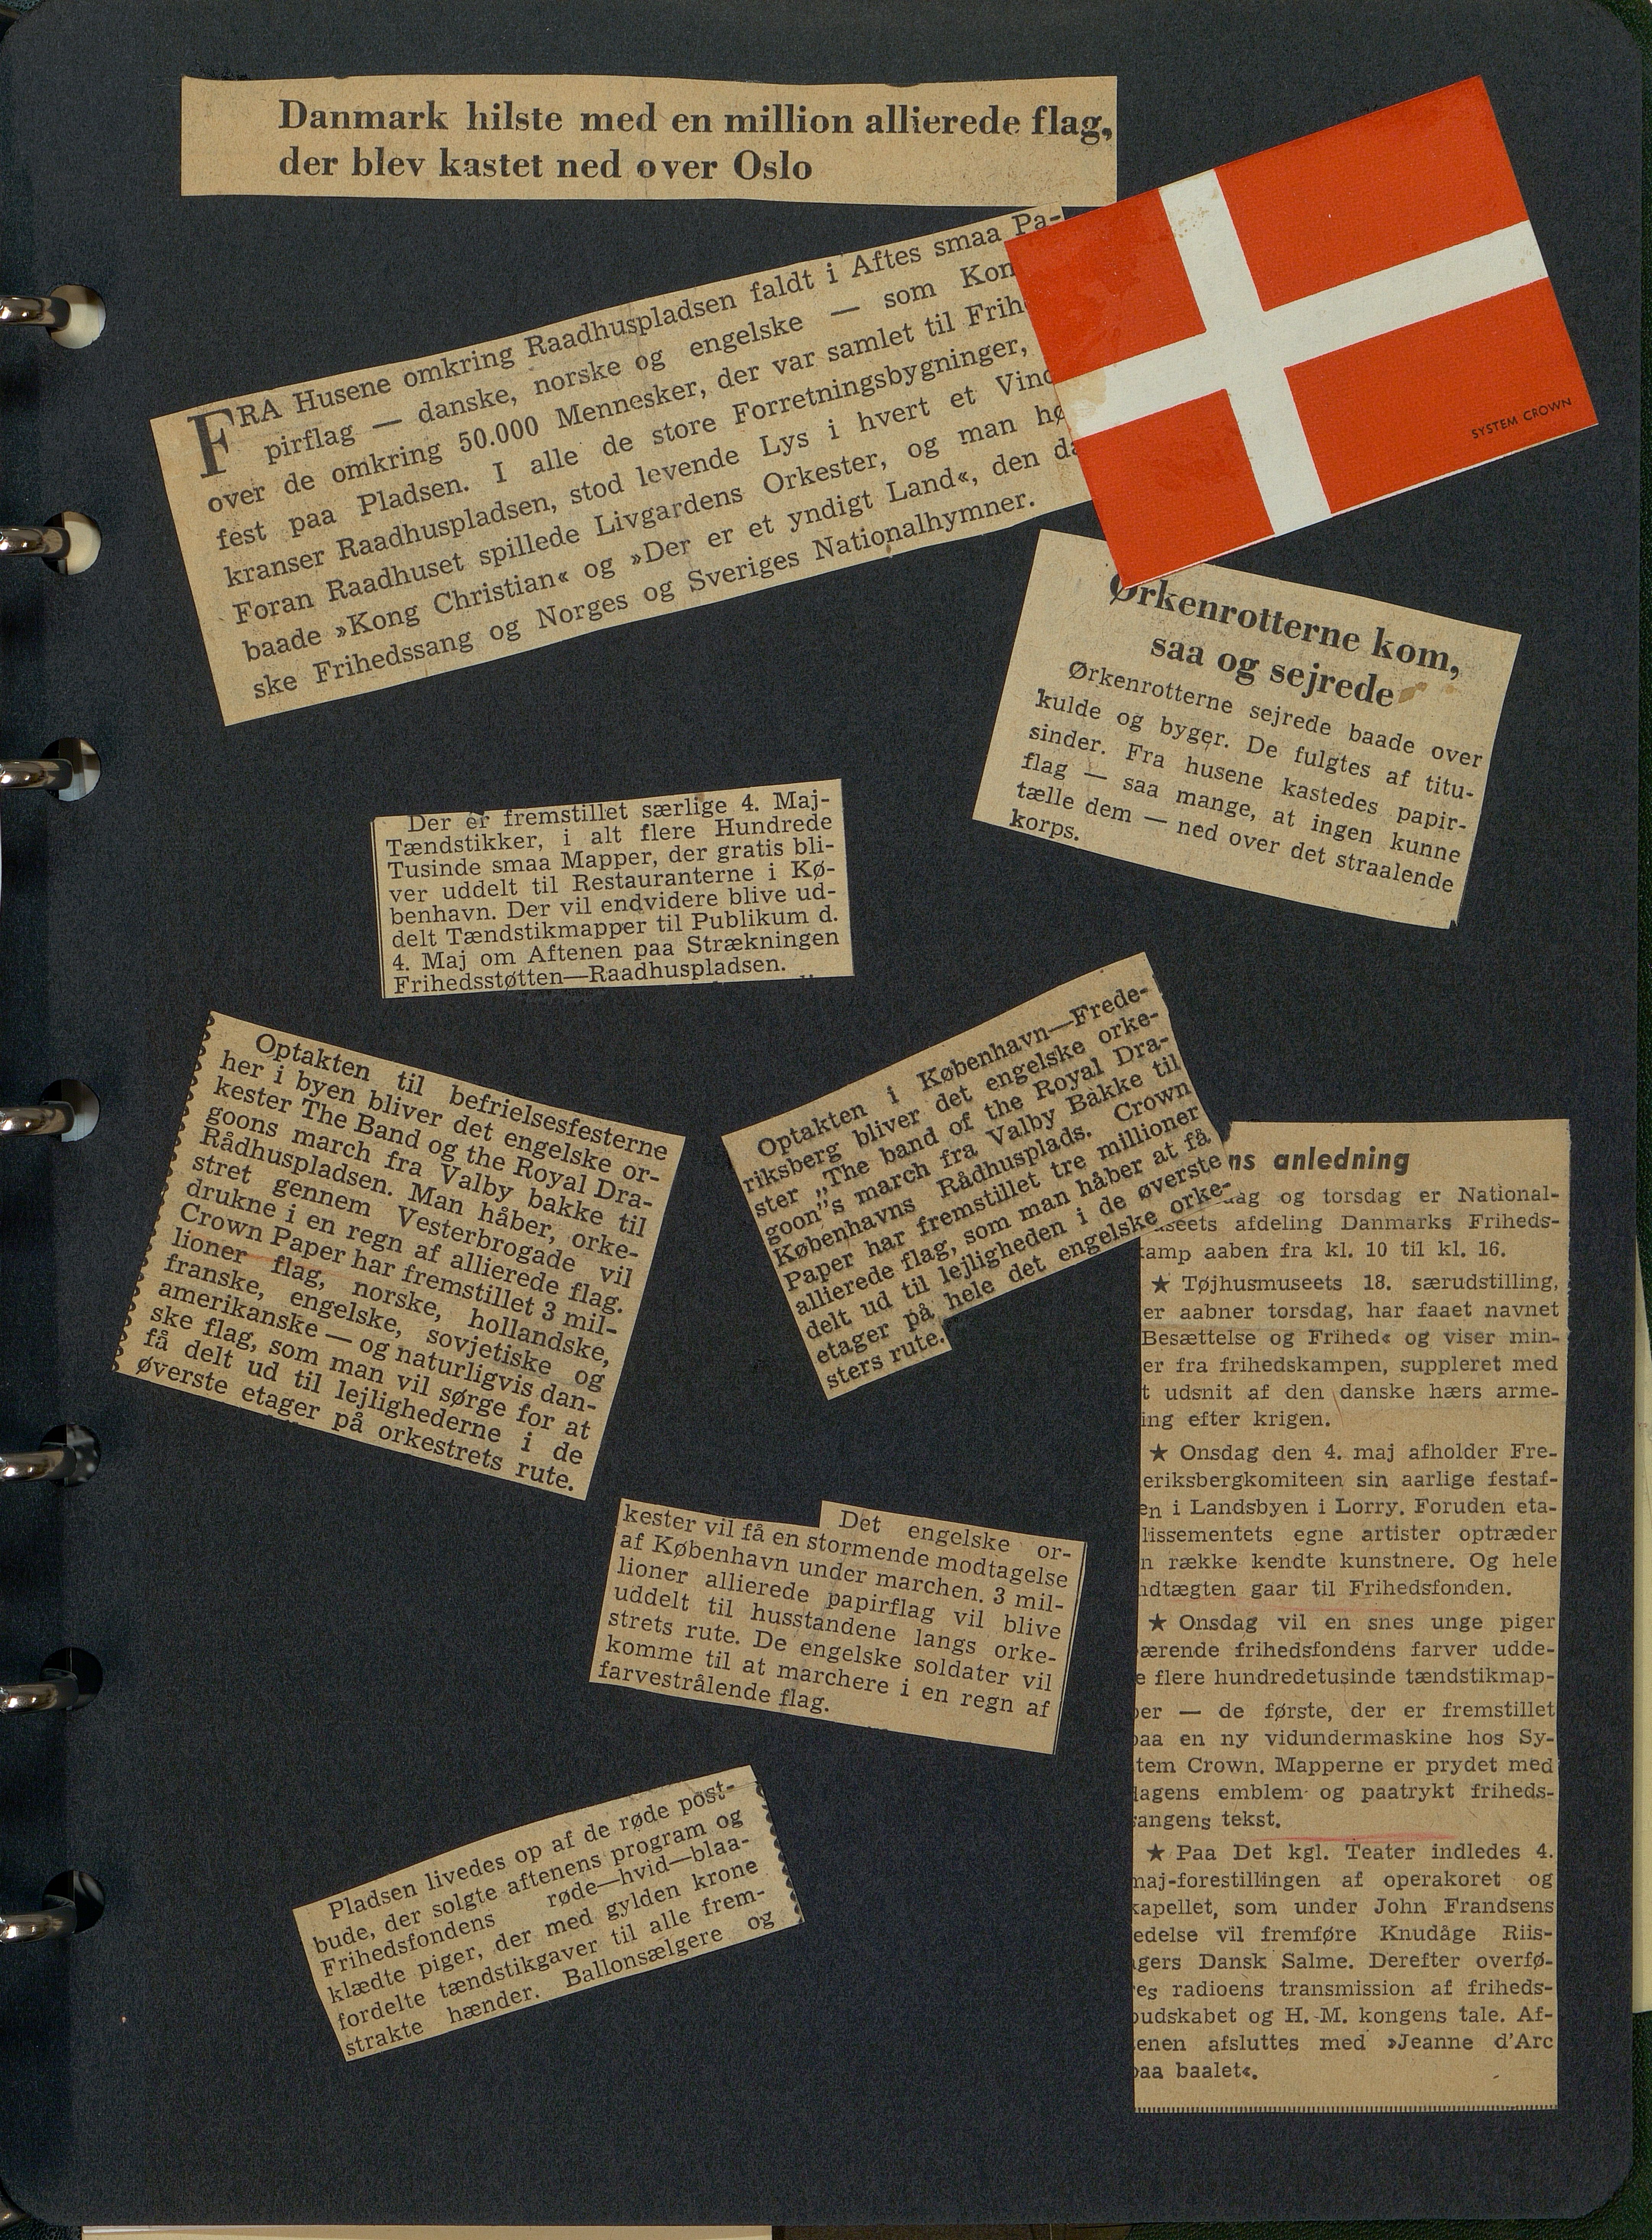 Danmark hilste med en million allierede flag,
der blev kastet ned over Oslo
FRA Husene omkring Raadhuspladsen faldt i Aftes smaa Pa-
pirflag — danske, norske og engelske — som Kon
over de omkring 50.000 Mennesker, der var samlet til Frih
fest paa Pladsen. I alle de store Forretningsbygninger,
kranser Raadhuspladsen, stod levende Lys i hvert et Vind
Foran Raadhuset spillede Livgardens Orkester, og man hø
baade »Kong Christian« og »Der er et yndigt Land«, den da
ske Frihedssang og Norges og Sveriges Nationalhymner.
SYSTEM CROWN
Ørkenrotterne kom,
saa og sejrede
Ørkenrotterne sejrede baade over
kulde og byger. De fulgtes af titu-
sinder. Fra husene kastedes papir-
flag — saa mange, at ingen kunne
tælle dem — ned over det straalende
korps.
Der er fremstillet særlige 4. Maj-
Tændstikker, i alt flere Hundrede
Tusinde smaa Mapper, der gratis bli-
ver uddelt til Restauranterne i Kø-
benhavn. Der vil endvidere blive ud-
delt Tændstikmapper til Publikum d.
4. Maj om Aftenen paa Strækningen
Frihedsstøtten—Raadhuspladsen.
Optakten til befrielsesfesterne
her i byen bliver det engelske or-
kester The Band og the Royal Dra-
goons march fra Valby bakke til
Rådhuspladsen. Man håber, orke-
stret gennem Vesterbrogade vil
drukne i en regn af allierede flag.
Crown Paper har fremstillet 3 mil-
lioner flag, norske, hollandske,
franske, engelske, sovjetiske og
amerikanske — og naturligvis dan-
ske flag, som man vil sørge for at
få delt ud til lejlighederne i de
øverste etager på orkestrets rute.
Optakten i København—Frede-
riksberg bliver det engelske orke-
ster „The band of the Royal Dra-
goon”s march fra Valby Bakke til
Københavns Rådhusplads. Crown
Paper har fremstillet tre millioner
allierede flag, som man håber at få
delt ud til lejligheden i de øverste
etager på hele det engelske orke-
sters rute.
Det engelske or-
kester vil få en stormende modtagelse
af København under marchen. 3 mil-
lioner allierede papirflag vil blive
uddelt til husstandene langs orke-
strets rute. De engelske soldater vil
komme til at marchere i en regn af
farvestrålende flag.
Pladsen livedes op af de røde post-
bude, der solgte aftenens program og
Frihedsfondens røde—hvid—blaa-
klædte piger, der med gylden krone
fordelte tændstikgaver til alle frem-
strakte hænder. Ballonsælgere og
ns anledning
ag og torsdag er National-
seets afdeling Danmarks Friheds-
amp aaben fra kl. 10 til kl. 16.
★ Tøjhusmuseets 18. særudstilling,
er aabner torsdag, har faaet navnet
Besættelse og Frihed« og viser min-
er fra frihedskampen, suppleret med
t udsnit af den danske hærs arme-
ing efter krigen.
★ Onsdag den 4. maj afholder Fre-
eriksbergkomiteen sin aarlige festaf-
en i Landsbyen i Lorry. Foruden eta-
lissementets egne artister optræder
n række kendte kunstnere. Og hele
ndtægten gaar til Frihedsfonden.
★ Onsdag vil en snes unge piger
ærende frihedsfondens farver udde-
e flere hundredetusinde tændstikmap-
per — de første, der er fremstillet
paa en ny vidundermaskine hos Sy-
tem Crown. Mapperne er prydet med
dagens emblem og paatrykt friheds-
sangens tekst.
★ Paa Det kgl. Teater indledes 4.
maj-forestillingen af operakoret og
kapellet, som under John Frandsens
edelse vil fremføre Knudåge Riis-
agers Dansk Salme. Derefter overfø-
res radioens transmission af friheds-
budskabet og H. M. kongens tale. Af-
enen afsluttes med »Jeanne d'Arc
paa baalet«.